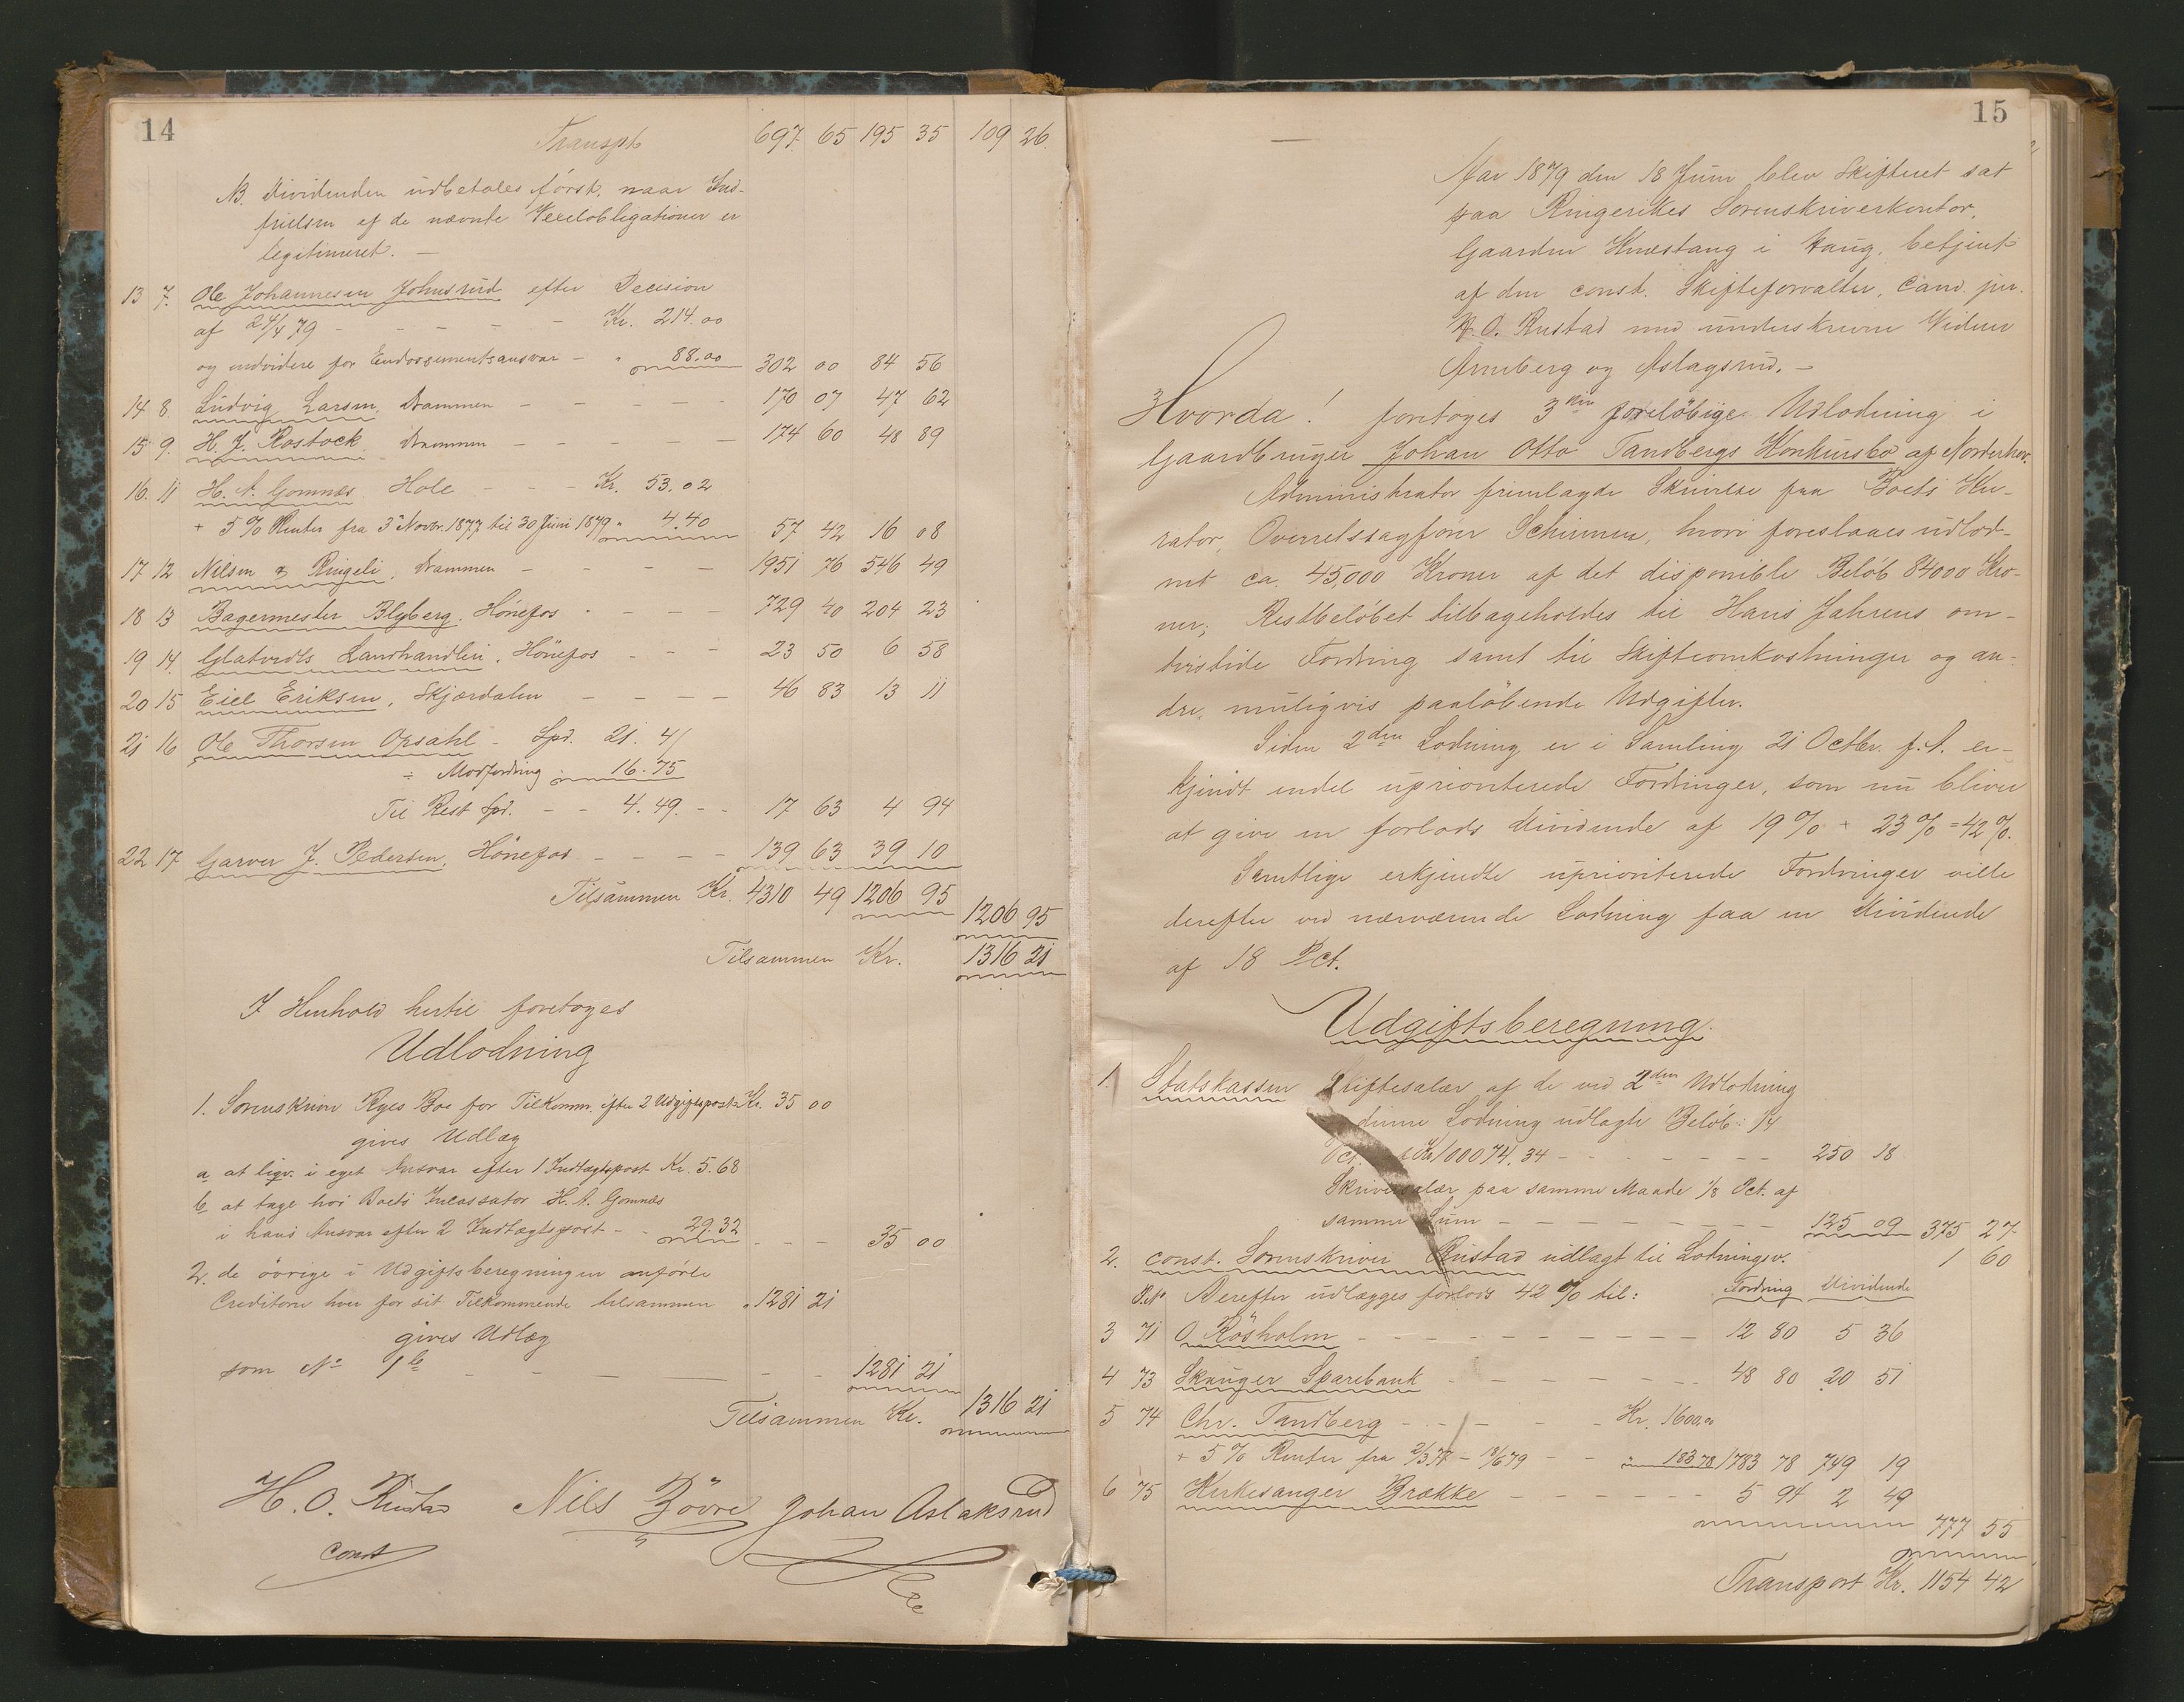 14
Transpt 697 65 195 35 109 26.
NB. Dividenden udbetales först, naar Ind-
frielsen af de nævnte Vexelobligationer er
legitimeret. —
13 7. Ole Johannesen Johnsrud efter Decision
af 24/4 79 - - - - - Kr. 214.00
og endvidere for Endossementsansvar - " 88.00 302 00 84 56
14 8. Ludvig Larsen, Drammen - - - - - 170 07 47 62
15 9. H. J. Rostock Drammen - - - - - 174 60 48 89
16. 11 H. A. Gomnæs Hole - - - Kr. 53.02
+ 5% Renter fra 3 Novbr. 1877 til 30 Juni 1879 " 4.40 57 42 16 08
17 12 Nilsen & Ringeli, Drammen - - - - 1951 76 546 49
18 13 Bagermester Blyberg, Hönefos - - - - 729 40 204 23
19 14 Glatvedts Landhandleri, Hönefos - - - 23 50 6 58
20 15 Eiel Eriksen, Skjærdalen - - - - 46 83 13 11
21 16 Ole Thorsen Opsahl - Spd. 21. 4/
÷ Modfordring - 16-75
Til Rest Spd. - - 4. 49. - - 17 63 4 94
22 17 Garver J. Pedersen, Hönefos - - - - 139 63 39 10
Tilsammen Kr. 4310 49 1206 95
1206 95
Tilsammen Kr. 1316 21
I Henhold hertil foretoges
Udlodning
1. Sorenskriver Ryes Bo for Tilkomm. efter 2 Udgiftspost Kr. 35 00
gives Udlæg
a at liqv. i eget Ansvar efter 1 Indtægtspost Kr. 5.68
b at tage hos Boets Incassator H. A. Gomnæs
i hans Ansvar efter 2 Indtægtspost - - 29.32 - - - 35 00
2. de övrige i Udgiftsberegningen anförte
Creditorer hver for sit Tilkommende tilsammen " 1281 21
gives Udlæg
som No 1 b - - - - - - 1281 21
Tilsammen Kr. 1316 21
H. O. Rustad Nils Bövre Johan Aslaksrud
const
15
Aar 1879 den 18 Juni blev Skifteret sat
paa Ringerikes Sorenskriverkontor,
Gaarden Knestang i Haug, betjent
af den const. Skifteforvalter, Cand. jur.
H. O. Rustad med underskrevne Vidner
Anneberg og Aslagsrud. —
Hvorda! foretoges 3die foreløbige Udlodning i
Gaardbruger Johan Otto Tandbergs Konkursbo af Norderhov.
Administrator fremlagde Skrivelse fra Boets Ku-
rator, Overretssagfører, hvori foreslaaes udlod-
net ca. 45,000 Kroner af det disponible Beløb 84000 Kro-
ner; Restbeløbet tilbageholdes til Hans Jahrens om-
tvistede Fordring samt til Skifteomkostninger og an-
dre, muligvis paaløbende Udgifter.
Siden 2den Lodning er i Samling 21 Octbr. f. A. er-
kjendt endel uprioriterede Fordringer, som nu bliver
at give en forlods Dividende af 19% + 23% = 42%.
Samtlige erkjendte uprioriterede Fordringer ville
derefter ved nærværende Lodning faa en Dividende
af 18 Pct.
Udgiftsberegning.
1. Statskassen Skiftesalær af de ved 2den Udlodning
denne Lodning udlagte Beløb: 1/4
Pct. Kr. 100074.34 - - - - - - - 250 18
Skriversalær paa samme Maade 1/8 Pct. af
samme Sum - - - - - - - - - 125 09 375 27
2. const. Sorenskriver Rustad udlagt til Lodningsv. 1 60
P.N. Derefter udlægges forlods 42% til: Fordring Dividende
3 71 O. Rösholm - - - - - - - - - 12 80 5 36
4 73 Skauger Sparebank - - - - - - - 48 80 20 51
5 74 Chr. Tandberg - - - - - - Kr. 1600.00
+ 5% Renter fra 2/3 77 - 18/6 79 - - " 183 78 1783 78 749 19
6 75 Kirkesanger Brække - - - - - - - 5 94 2 49
777 55
Transport Kr. 1154 42